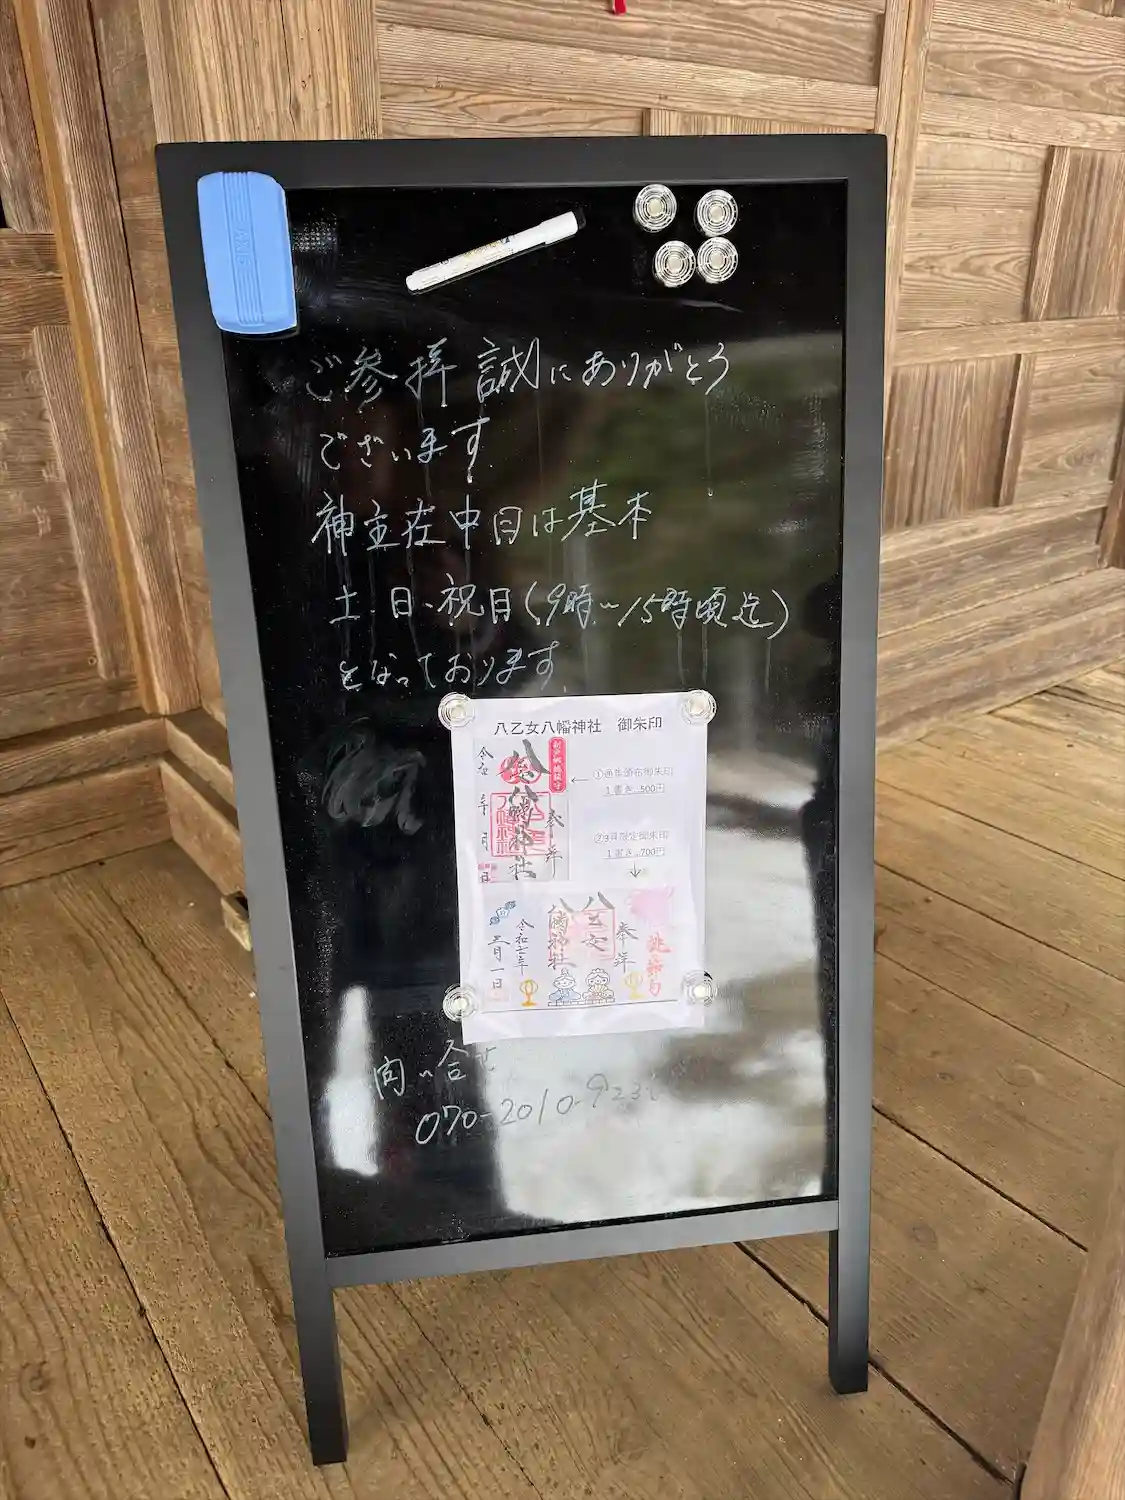 ご参拝誠にありがとう
ございます
神主在中日は基本
土・日・祝日(9時〜15時頃迄)
となっております
八乙女八幡神社 御朱印
①通年頒布御朱印
1書き…500円
②3月限定御朱印
1書き…700円
奉拝
八乙女
八幡神社
令和 年 月 日
桃の節句
奉拝
八乙女
八幡神社
三月一日
問い合せ
070-2010-923